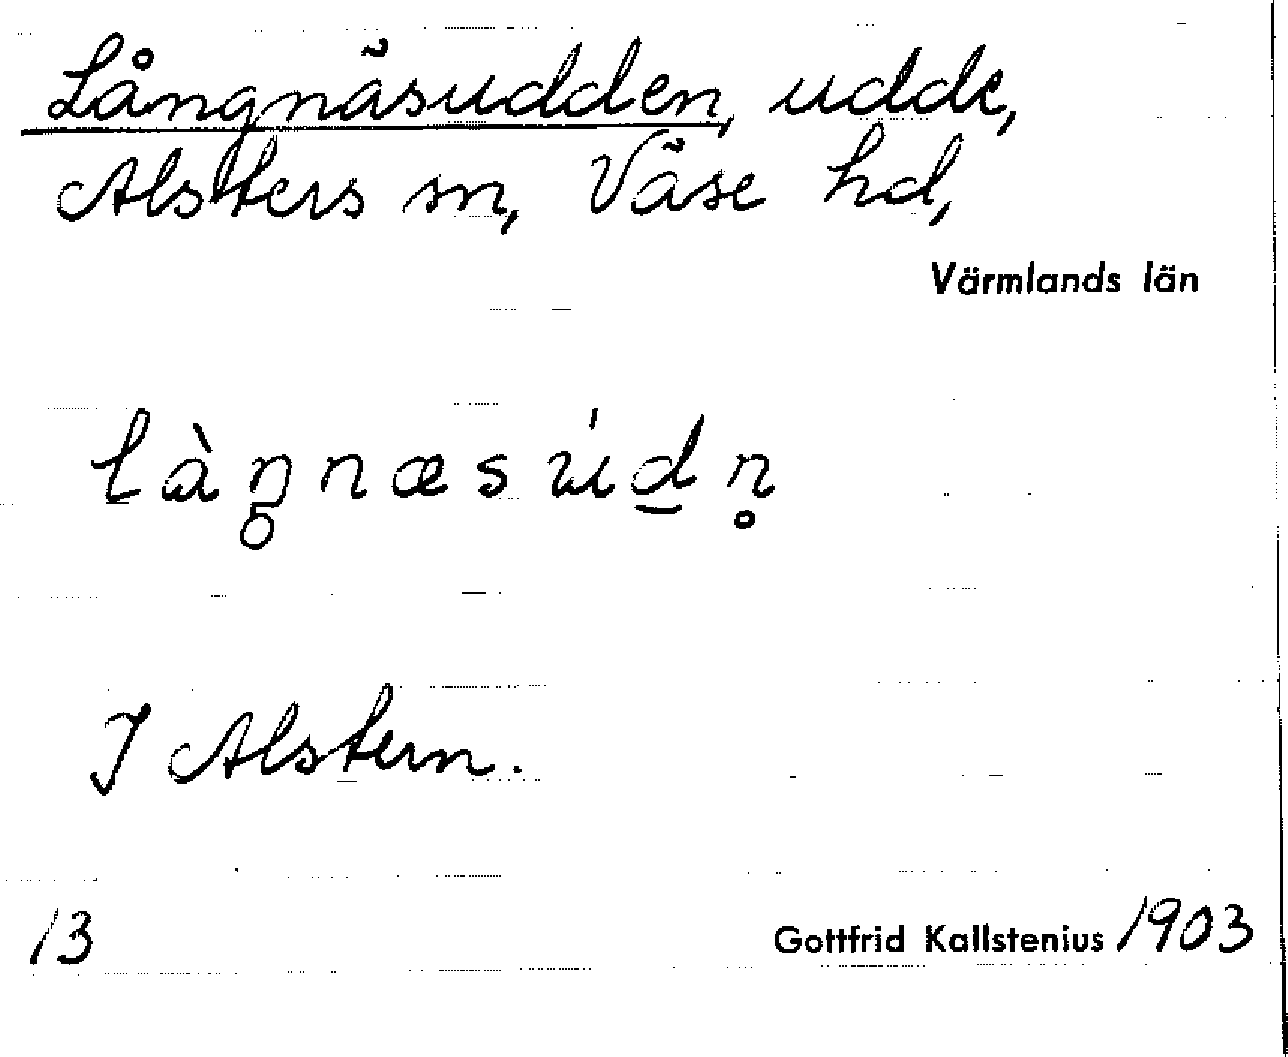 Långnäsudden, udde,
Alsters sn, Väse hd,
Värmlands län
làŋ̥næsu̍d̠n̥
I Alstern.
13
Gottfrid Kallstenius 1903